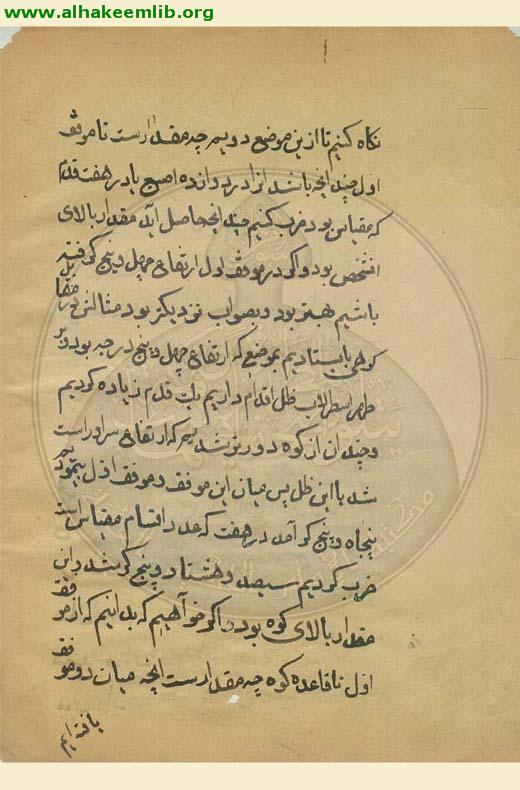 www.alhakeemlib.org
نکاه کنیم تا ازین موضع دویم چه مقدارست تا موقف
اول چند انچه باشد انرا در دوازده اصبع یا در هفت قدم
که مقیاس بود ضرب کنیم چند انچه حاصل آید مقدار بالای
انشخص بود واکر در موقف اول ارتفاع چهل و پنج کرفته
باشیم بهتر بود و بصواب نزدیکتر بود مثالش در مقا
کوهی بایستادیم بموضع که ارتفاع چهل و پنج درجه بود و بر
ظهر اسطرلاب ظل اقدام داریم یک قدم زیاده کردیم
و چندان از کوه دورتر شدیم که ارتفاع سر او راست
شد با این ظل پس میان این موقف و موقف اول پیمودیم
پنجاه و پنج کز آمد در هفت که عدد اقسام مقیاس است
ضرب کردیم سیصد و هشتاد و پنج کز شد و این
مقدار بالای کوه بود و اکر خواهیم که بدانیم که از موقف
اول تا قاعده کوه چه مقدارست انچه میان دو موقف
یافته ایم